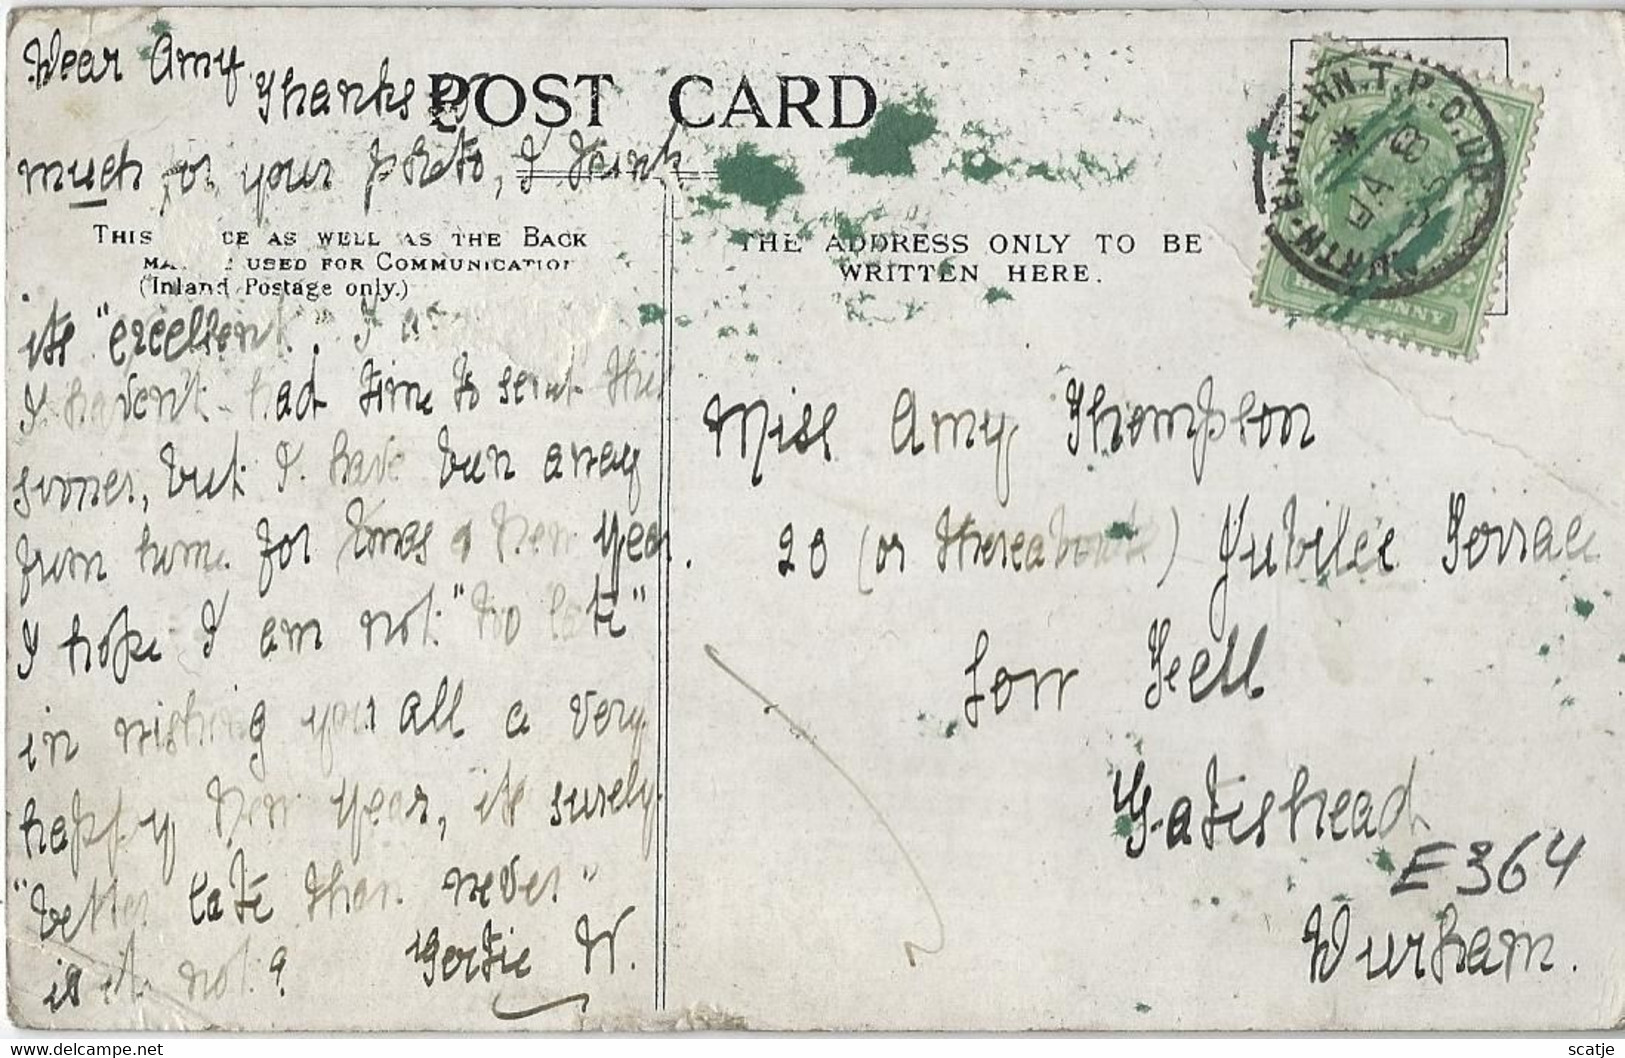 Dear Amy
Thanks so
POST CARD
much for your photo, I think
THIS SPACE AS WELL AS THE BACK
MAY BE USED FOR COMMUNICATION
(Inland Postage only.)
its "excellent". I
I haven't had time to send this
sooner, but I have been away
from home for Xmas & New Year.
I hope I am not "too late"
in wishing you all a very
happy New Year, its surely
"better late than never"
is it not?
Gertie W.
THE ADDRESS ONLY TO BE
WRITTEN HERE.
NORTH. EASTERN. T.P.O.
JA 8
PENNY
Miss Amy Thompson
20 (or thereabouts) Jubilee Terrace
Low Fell
Gateshead
E364
Durham.
www.delcampe.net
scatje